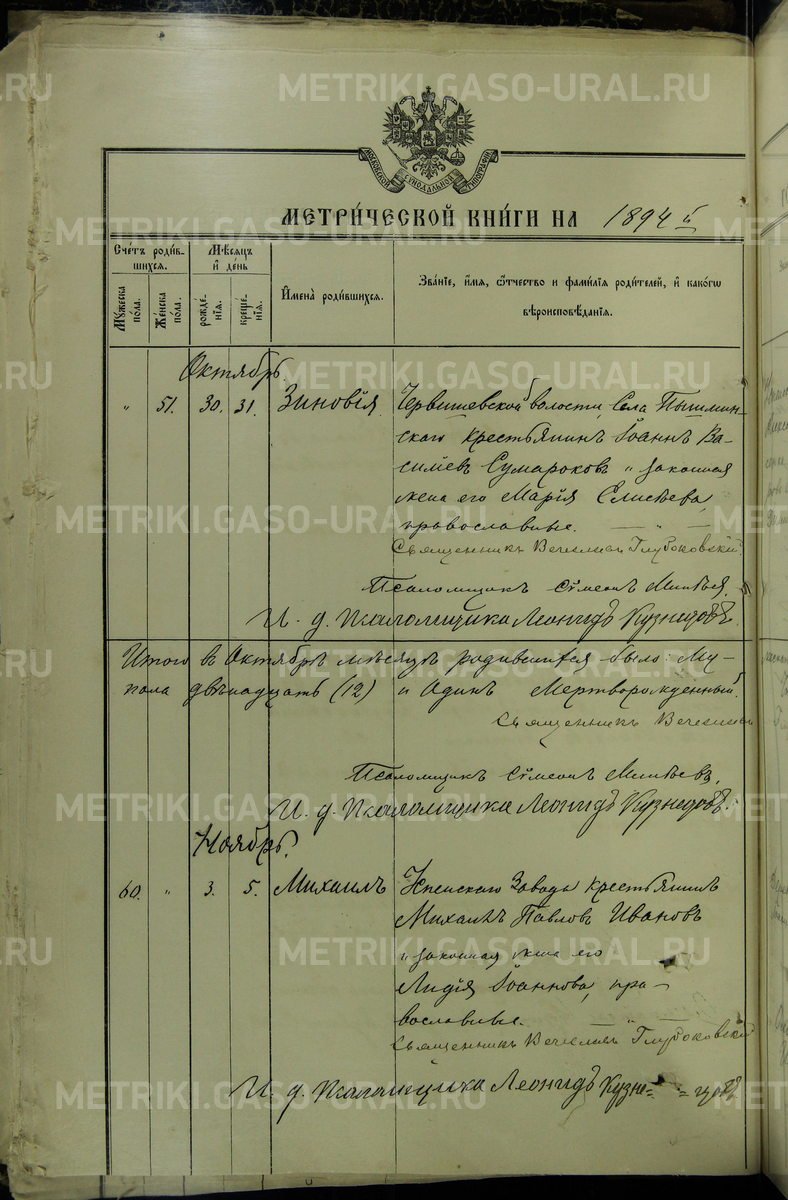 METRIKI.GASO-URAL.RU
МОСКОВСКОЙ СѴНОДАЛЬНОЙ ТИПОГРАФІИ
МЕТРИ́ЧЕСКОЙ КНИ́ГИ НА 1894 й
Сче́тъ роди́в-
шихся.
Мѣ́сяцъ
и҆ де́нь
И҆мена̀ роди́вшихся.
Зва́ніе, и҆́мя, ѻ҆́тчество и҆ фами́лія роди́телей, и҆ како́гѡ
вѣроисповѣ́данія.
Мꙋ́жеска по́ла.
Же́нска по́ла.
рожде́нія.
креще́нія.
Октябрь.
" 51. 30. 31. Зиновія. Червишевской волости, Села Пышмин-
скаго крестьянинъ Іоаннъ Ва-
сильевъ Сумароковъ и законная
жена его Марія Елисѣева,
православные.
Священникъ Глубоковскій.
Псаломщикъ Сѵмеонъ
И. д. псаломщика Леонидъ Кузнецовъ.
Итого въ Октябрѣ мѣсяцѣ родившихся было: му-
пола двѣнадцать (12) и Одинъ Мертворожденный.
Священникъ
Псаломщикъ Сѵмеонъ
И. д. псаломщика Леонидъ Кузнецовъ.
Ноябрь.
60. " 3. 5. Михаилъ Завода крестьянинъ
Михаилъ Павловъ Ивановъ
и законная жена его
Лидія Іоаннова, пра-
вославные.
Священникъ Глубоковскій
И. д. псаломщика Леонидъ Кузне= =цовъ.